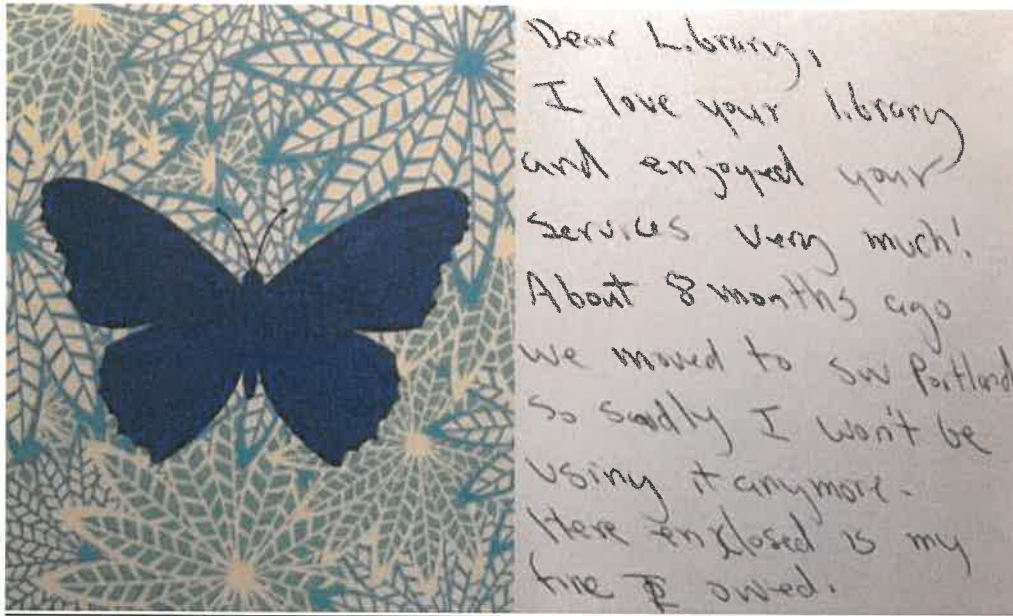 Dear Library,
I love your library
and enjoyed your
services very much!
About 8 months ago
we moved to SW Portland
so sadly I won't be
using it anymore.
Here enclosed is my
fine I owed.